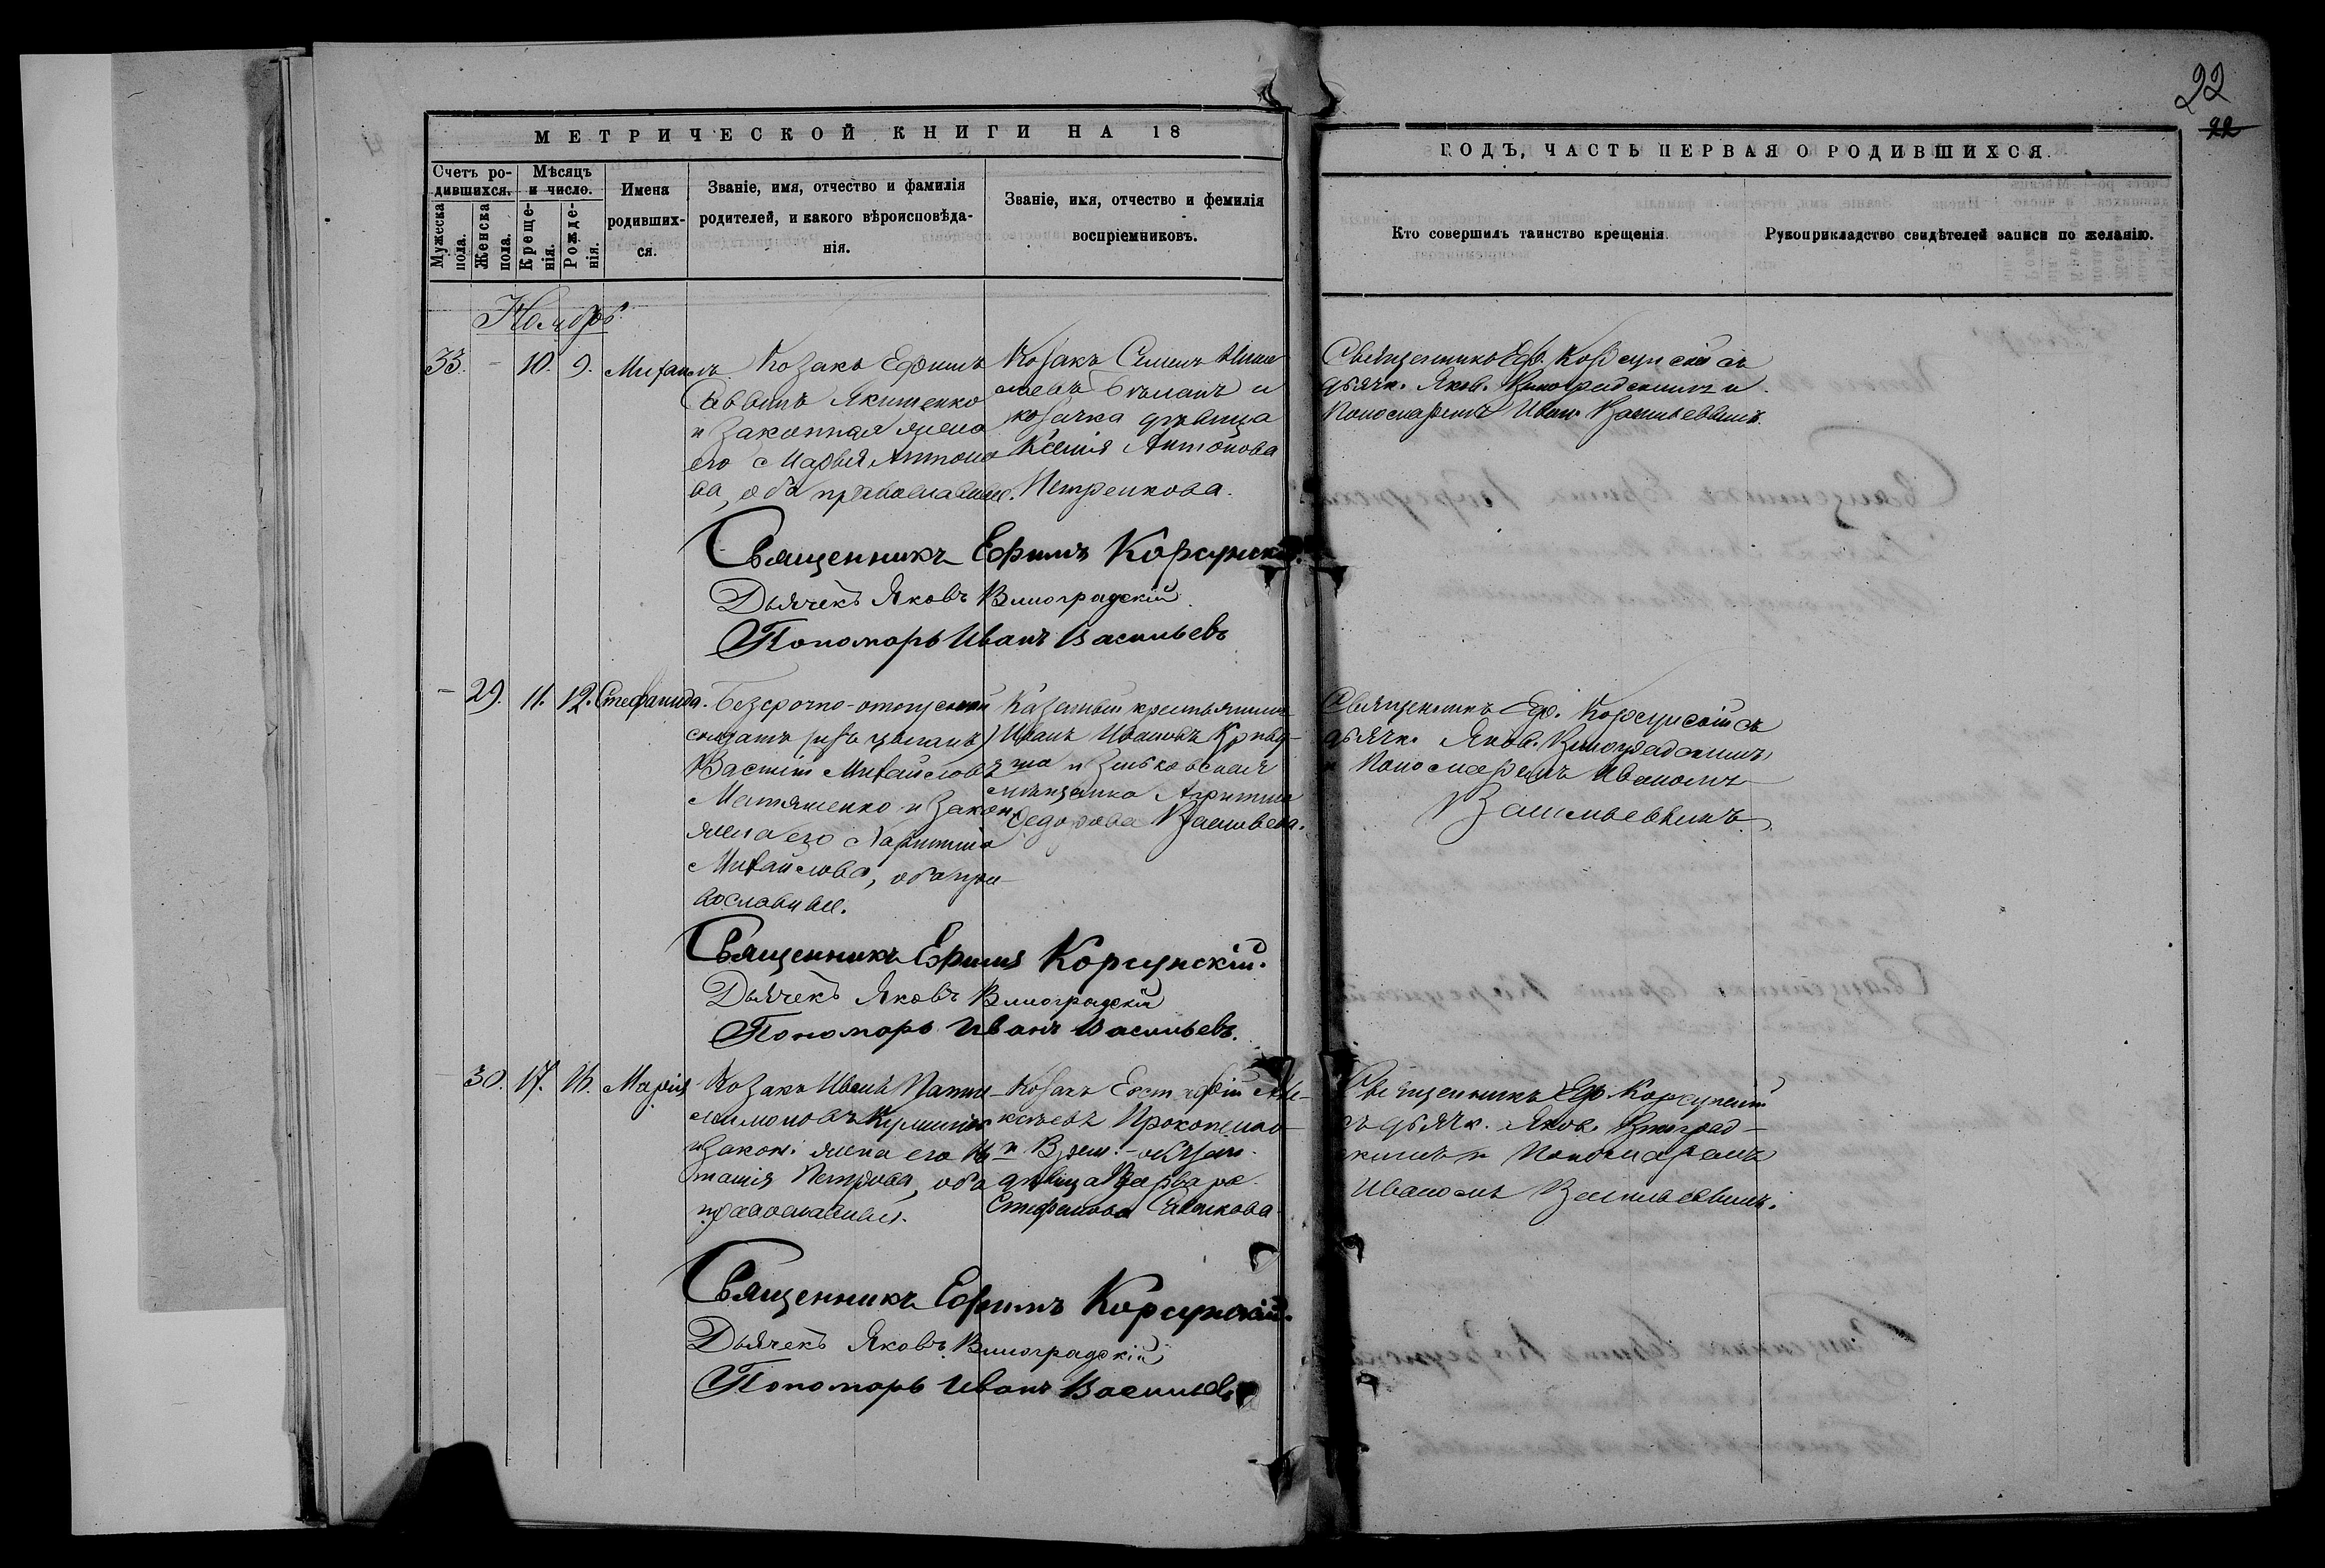 22
22
МЕТРИЧЕСКОЙ КНИГИ НА 18
ГОДЪ, ЧАСТЬ ПЕРВАЯ О РОДИВШИХСЯ.
Счетъ ро-
дившихся.
Мужеска
пола.
Женска
пола.
Мѣсяцъ
и число.
Креще-
нія.
Рожде-
нія.
Имена
родивших-
ся.
Званіе, имя, отчество и фамилія
родителей, и какого вѣроисповѣда-
нія.
Званіе, имя, отчество и фемилія
воспріемниковъ.
Кто совершилъ таинство крещенія
Рукоприкладство свидѣтелей записи по желанію.
Ноябрь
33. - 10. 9. Михаилъ
Козакъ Ефимъ
Саввинъ Якименко
и законная жена
его Марья Антоно
ва, оба православные.
Козакъ Семенъ
и
козачка дѣвица
Ксенія Антонова
Петренкова.
Священникъ Еф. Корсунскій съ
дьячк. Яков. Виноградскимъ и
Пономаремъ Иван. Васильевымъ.
Священникъ Ефимъ Корсунскій.
Дьячекъ Яковъ Виноградскій
Пономарь Иванъ Васильевъ
- 29. 11. 12. Стефанида.
Безсрочно-отпускной
солдатъ (изъ цыганъ)
Василій Михайловъ
Матяшенко и закон.
жена его Харитина
Михайлова, оба пра-
вославные.
Казенный крестьянинъ
Иванъ Ивановъ
и Зиньковская
мѣщанка
Федорова Васильева.
Священникъ Еф. Корсунскій съ
дьячк. Яков. Виноградскимъ
и Пономаремъ Иваномъ
Васильевымъ.
Священникъ Ефимъ Корсунскій.
Дьячекъ Яковъ Виноградскій
Пономарь Иванъ Васильевъ.
30. 17. 16. Марія
Козакъ Иванъ Панте
леимоновъ
и закон. жена его
Петрова, оба
православные.
Козакъ Евстафій Але-
ксѣевъ Прокопенко
и Врем.-обязан.
дѣвица Варвара
Стефанова
Священникъ Еф. Корсунскій
съ дьячк. Яков. Виноград-
скимъ и Пономаремъ
Иваномъ Васильевымъ.
Священникъ Ефимъ Корсунскій.
Дьячекъ Яковъ Виноградскій
Пономарь Иванъ Васильевъ